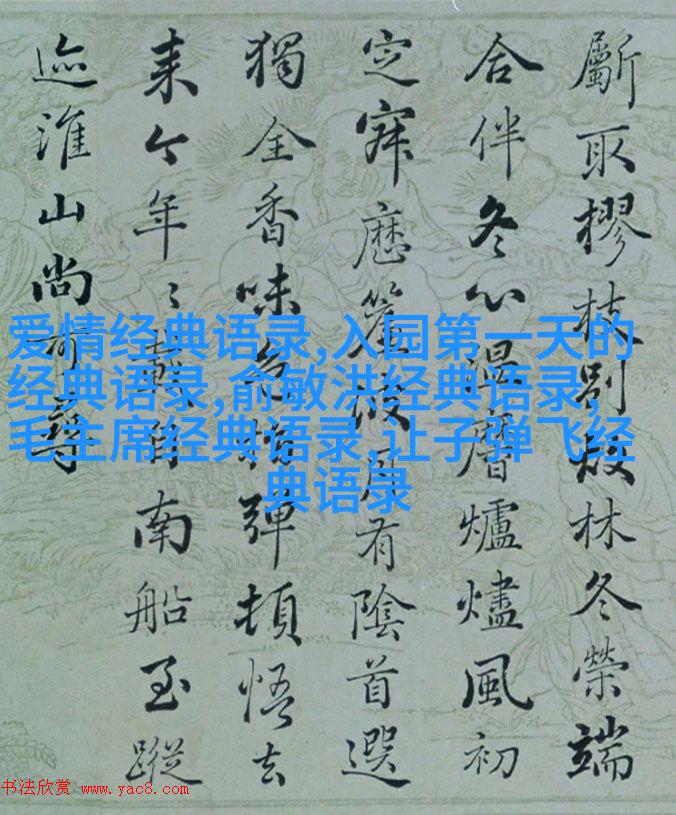 斸取樛枝別煅林冬榮端
合伴冬心温麿爐燼風初
定寐應簾波月有陰首選
獨全香味多指彈頓悟去
来今年〻戴自南船至蹤
迹淮山尚可尋
爱情经典语录,入园第一天的
经典语录,俞敏洪经典语录,
毛主席经典语录,让子弹飞经
典语录
书法欣赏 www.yac8.com